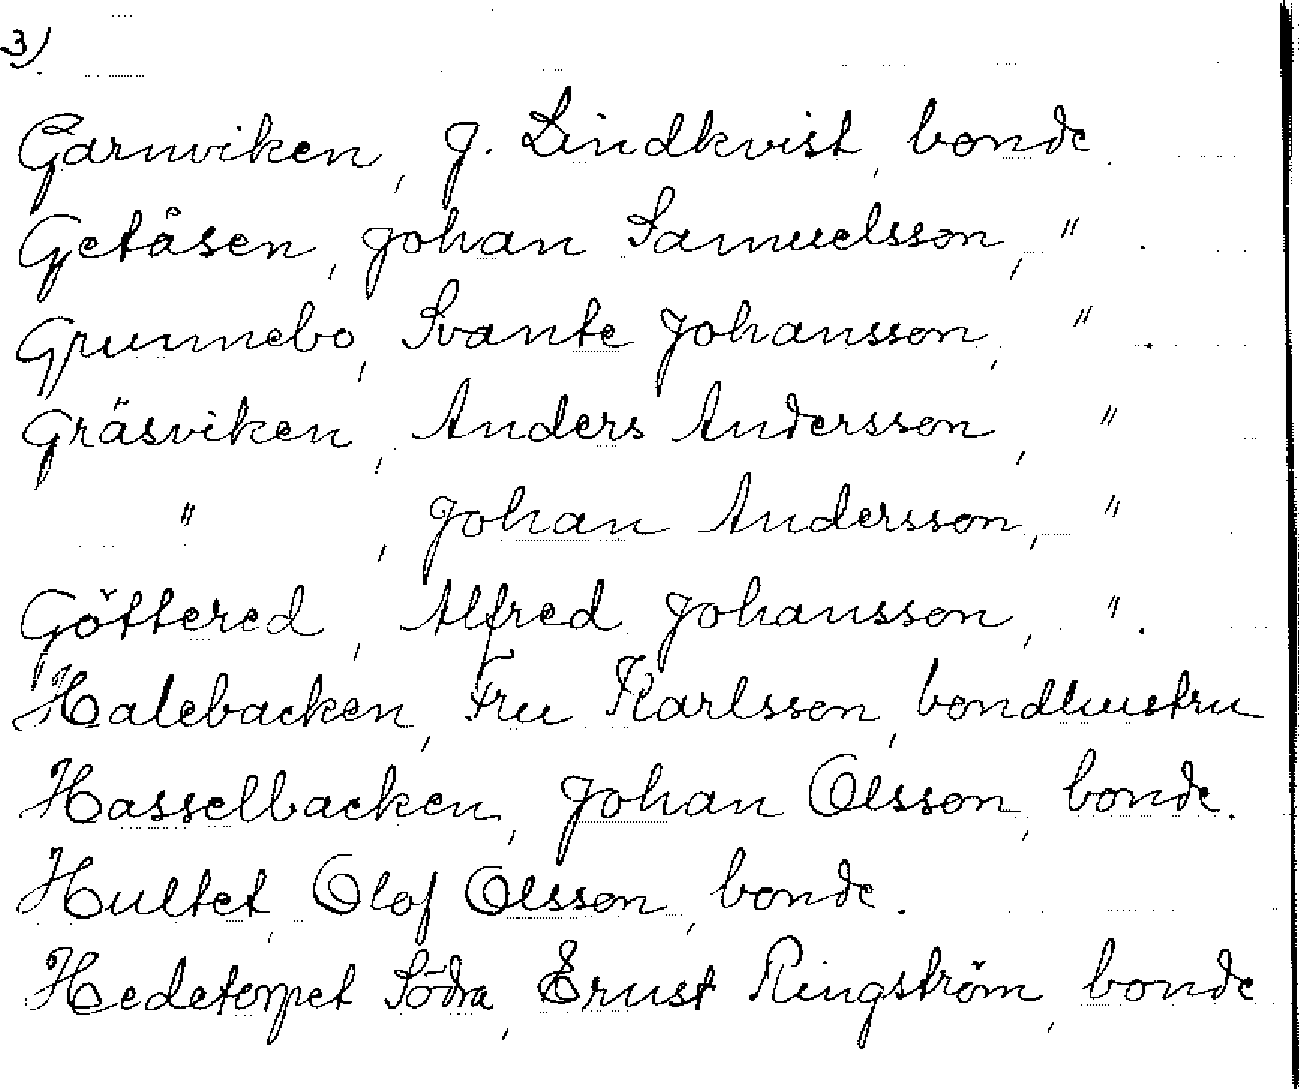 3)
Garnviken, J. Lindkvist, bonde.
Getåsen, Johan Samuelsson, " .
Grunnebo, Svante Johansson, " .
Gräsviken, Anders Andersson, "
" , Johan Andersson, "
Göttered, Alfred Johansson, " .
Halebacken, Fru Karlsson, bondhustru
Hasselbacken, Johan Olsson, bonde.
Hultet, Olof Olsson, bonde.
Hedetorpet Södra, Ernst Ringström, bonde